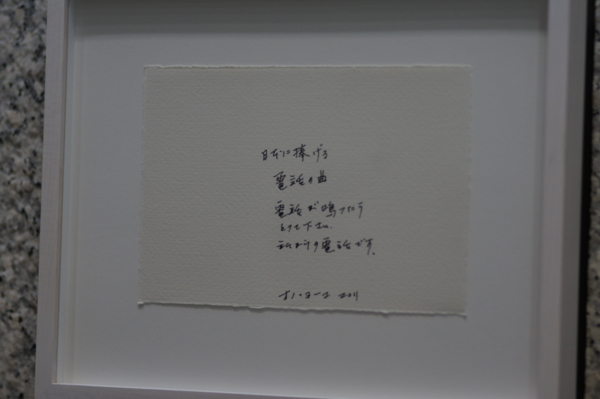 日本に捧げる
電話の曲
電話が鳴ったら
とって下さい。
私からの電話です。
ヨーコ 2011